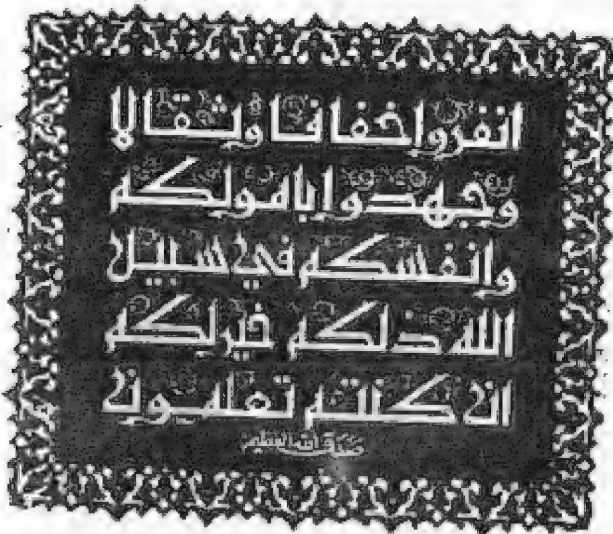 انفروا خفافا وثقالا
وجهدوا بامولكم
وانفسكم في سبيل
الله ذلكم خير لكم
ان كنتم تعلمون
صدق الله العظيم